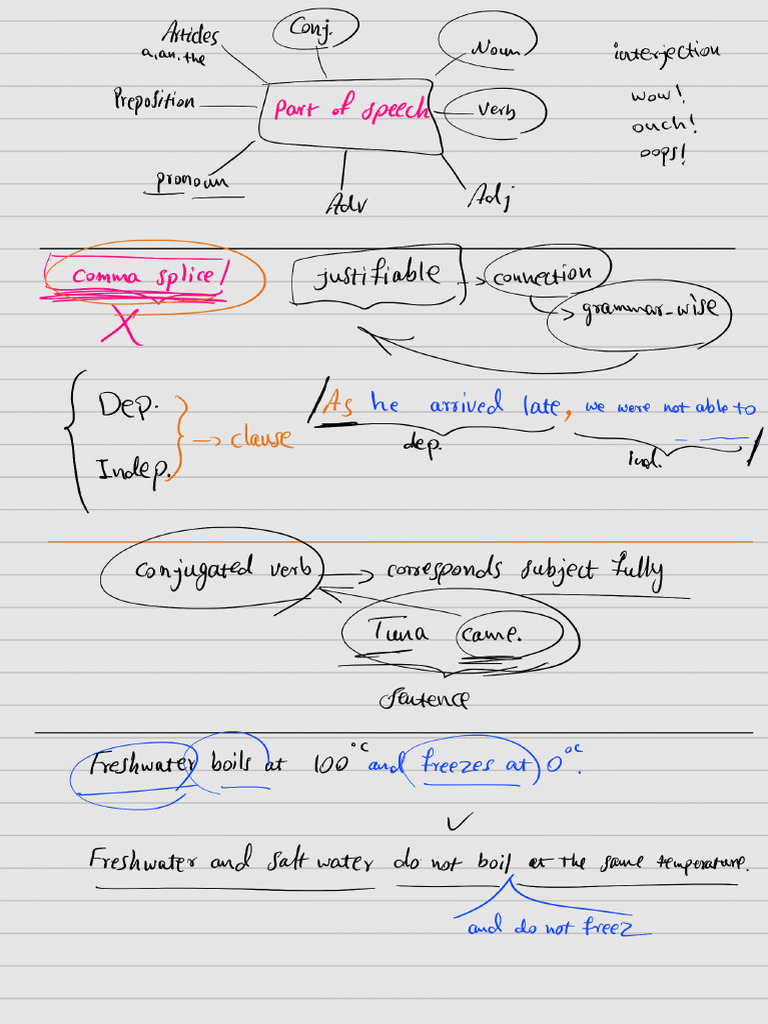 Articles
a, an, the
Conj.
Noun
interjection
Preposition
Part of speech
Verb
wow!
ouch!
oops!
pronoun
Adv
Adj
comma splice
justifiable → connection
→ grammar-wise
Dep.
Indep.
→ clause
As he arrived late, we were not able to
dep.
Ind.
Conjugated verb → corresponds subject fully
Tuna came.
sentence
Freshwater boils at 100°C and freezes at 0°C.
Freshwater and salt water do not boil at the same temperature.
and do not freez